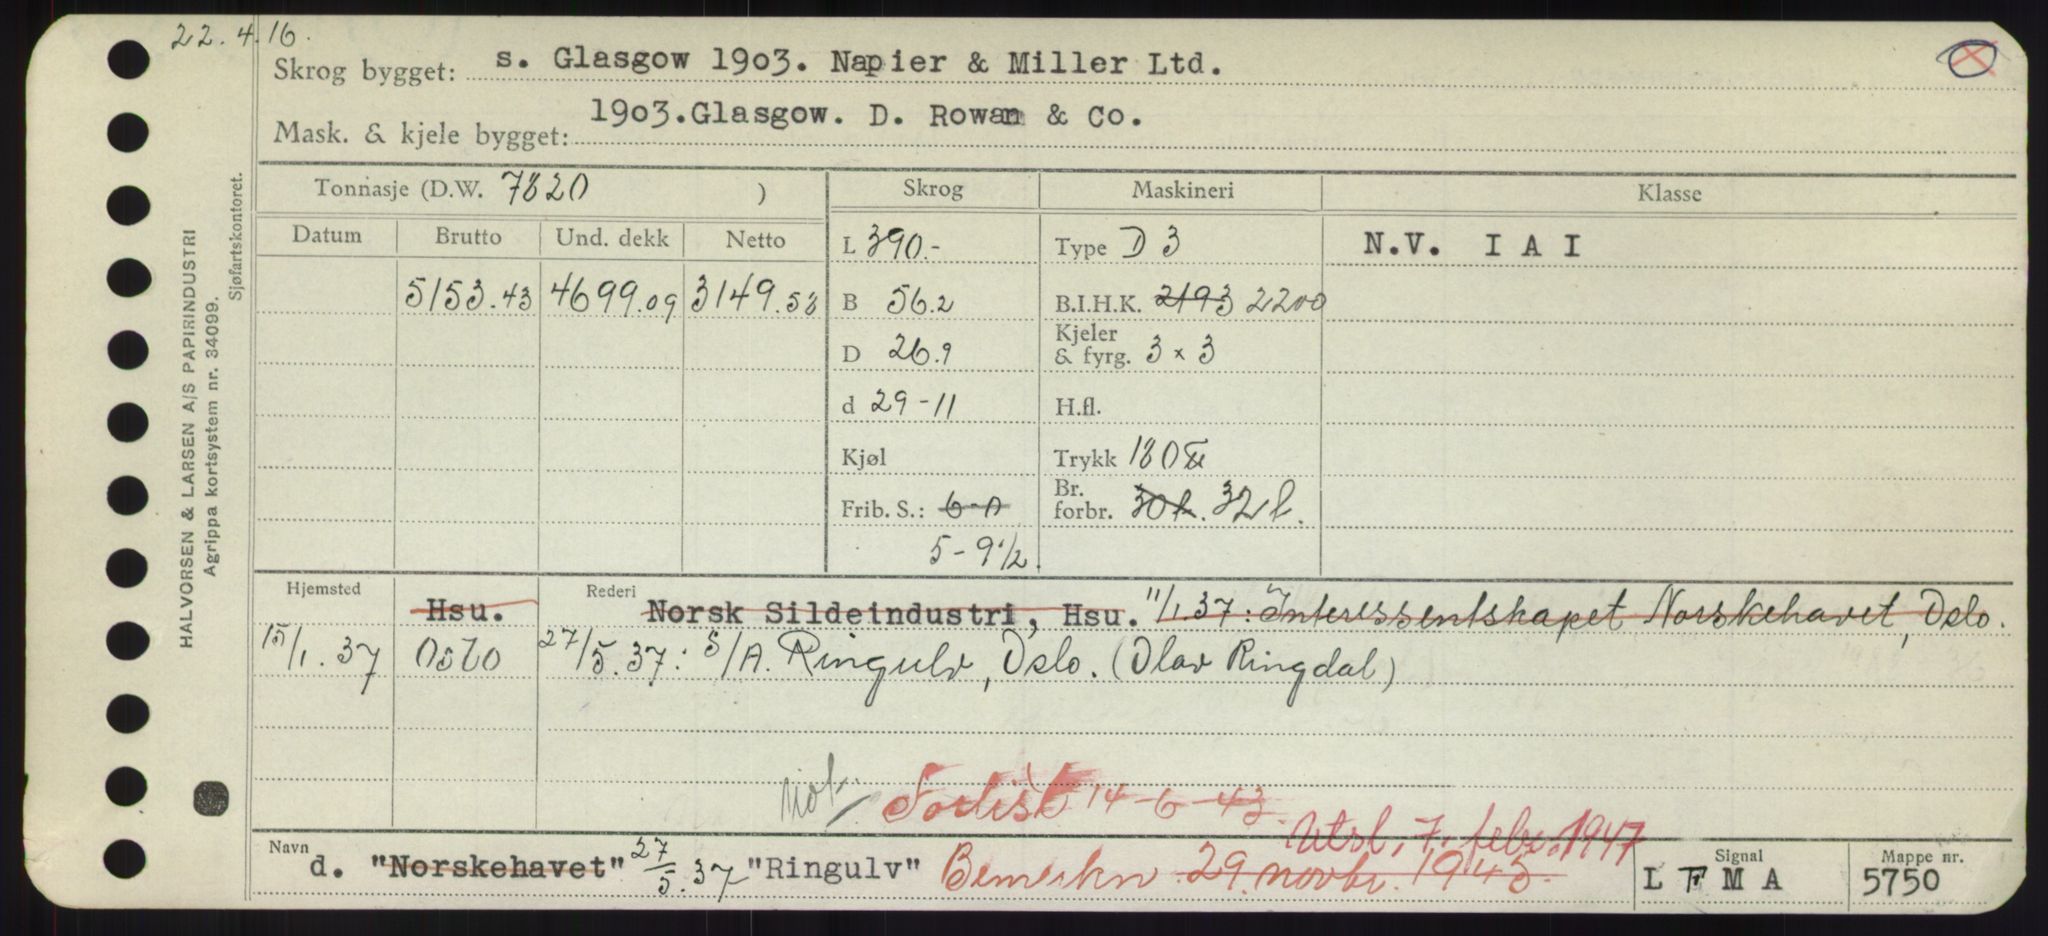 22.4.16.
Skrog bygget: s. Glasgow 1903. Napier & Miller Ltd.
Mask. & kjele bygget: 1903.Glasgow. D. Rowan & Co.
HALVORSEN & LARSEN A/S PAPIRINDUSTRI
Agrippa kortsystem nr. 34099.
Sjøfartskontoret.
Tonnasje (D.W. 7820 )
Datum Brutto Und. dekk Netto
5153.43 4699.09 3149.58
Skrog
L 390.-
B 56.2
D 26.9
d 29-11
Kjøl
Frib. S.: 6-0
5-9 1/2
Maskineri
Type D 3
B.I.H.K. 2193 2200
Kjeler
& fyrg. 3 x 3
H.fl.
Trykk 180
Br.
forbr. 30 t. 32 t.
Klasse
N.V. I A I
Hjemsted Hsu.
15/1.37 Oslo
Rederi Norsk Sildeindustri, Hsu. 11/1.37: Interessentskapet Norskehavet, Oslo.
27/5.37: S/A. Ringulv, Oslo. (Olav Ringdal)
not. Forlist 14-6-43
Utsl. 7. febr. 1947
Navn d. "Norskehavet" 27/5.37 "Ringulv" Bemerkn 29. novbr. 1945.
Signal
L F M A
Mappe nr.
5750